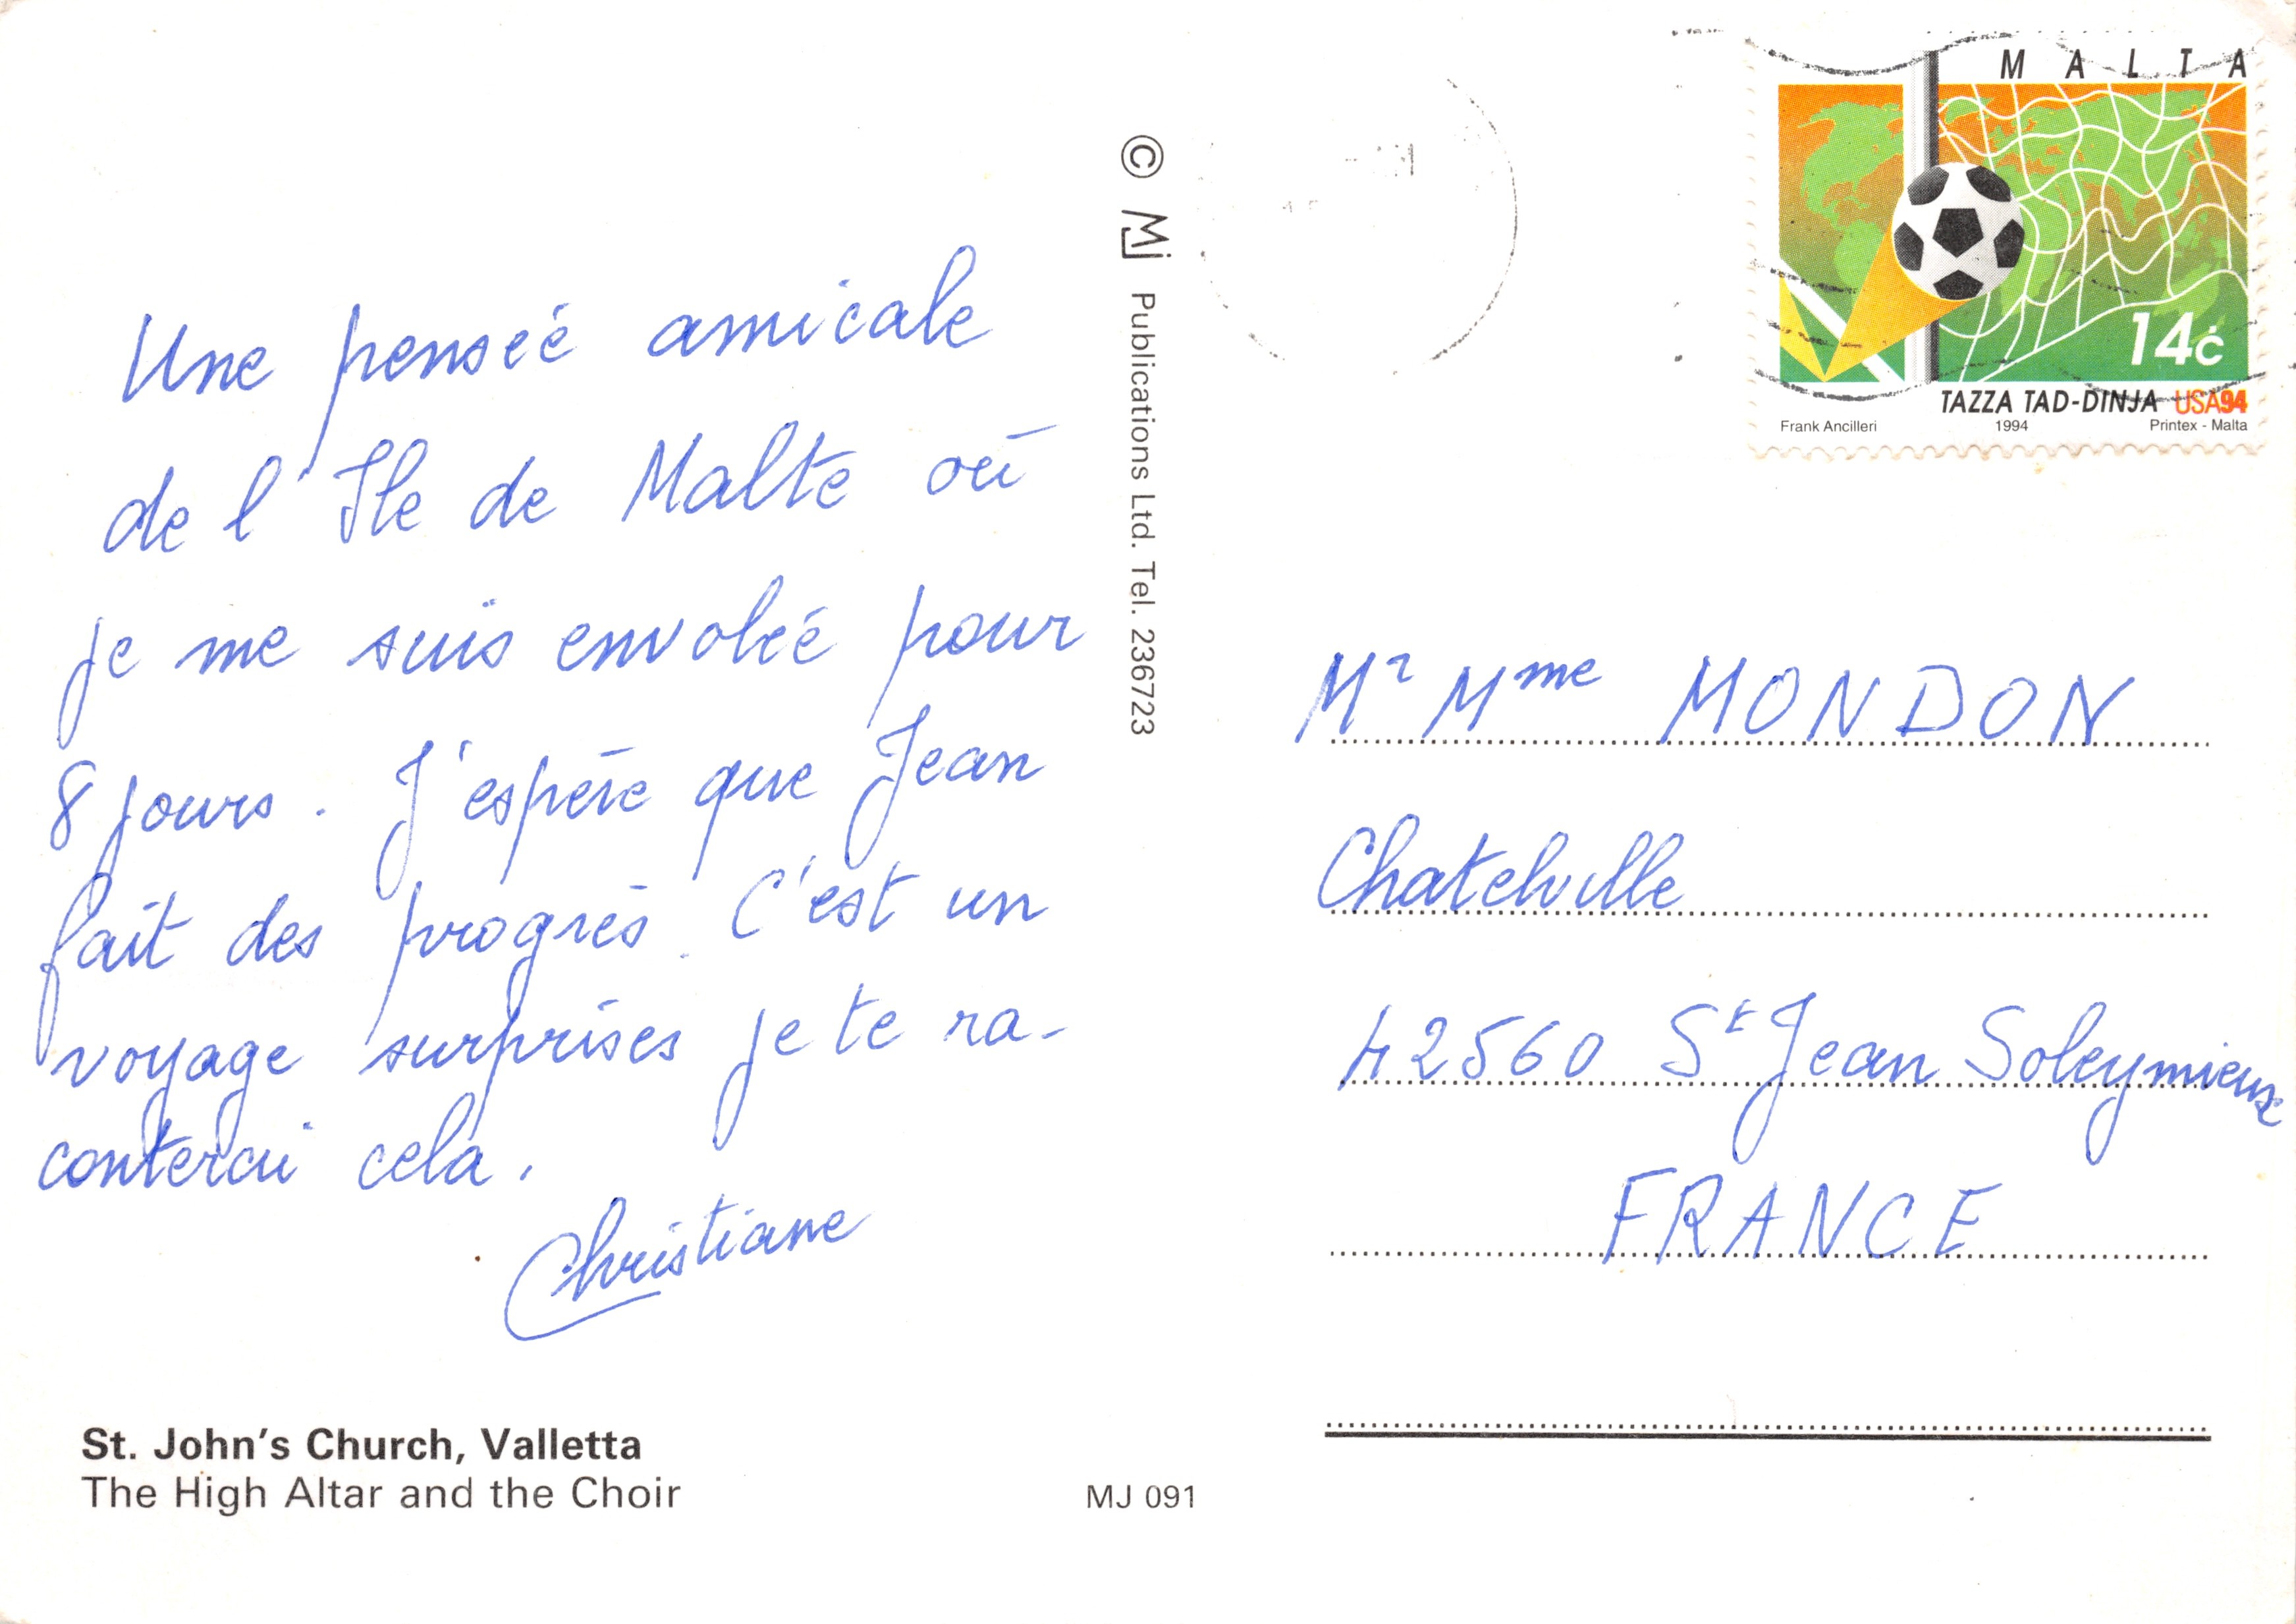 Une pensée amicale
de l'Île de Malte où
je me suis envolée pour
8 jours. J'espère que Jean
fait des progrès. C'est un
voyage surprises je te ra-
conterai cela.
Christiane
St. John's Church, Valletta
The High Altar and the Choir
MJ 091
© MJ Publications Ltd. Tel. 236723
MALTA
14ċ
TAZZA TAD-DINJA USA94
Frank Ancilleri 1994 Printex - Malta
Mr Mme MONDON
Chatelville
42560 St Jean Soleymieux
FRANCE